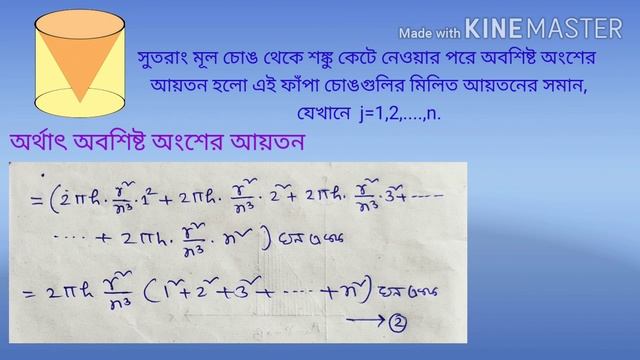 Made with KINEMASTER
সুতরাং মূল চোঙ থেকে শঙ্কু কেটে নেওয়ার পরে অবশিষ্ট অংশের
আয়তন হলো এই ফাঁপা চোঙগুলির মিলিত আয়তনের সমান,
যেখানে j=1,2,....,n.
অর্থাৎ অবশিষ্ট অংশের আয়তন
= (2πh · r²/n³ · 1² + 2πh · r²/n³ · 2² + 2πh · r²/n³ · 3² + -----
.... + 2πh · r²/n³ · n²) ঘন একক
= 2πh r²/n³ (1² + 2² + 3² + ---- + n²) ঘন একক
⟶ ②